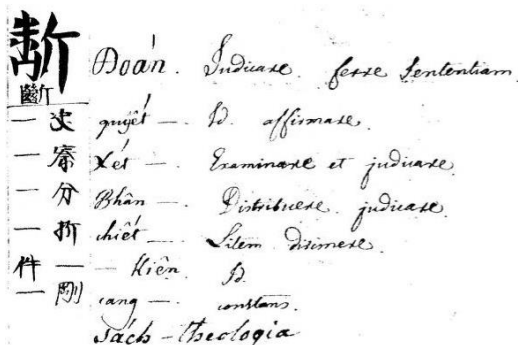 Đoán. Judicare. ferre Sententiam.
斷
— 决 quyết —. Id. affirmare.
— 察 Xét —. Examinare et judicare.
— 分 Phân —. Distribuere. judicare.
— 折 chiết —. Litem dirimere.
件 — — Kiện. Id.
— 剛 cang —. constans.
Sách – theologia